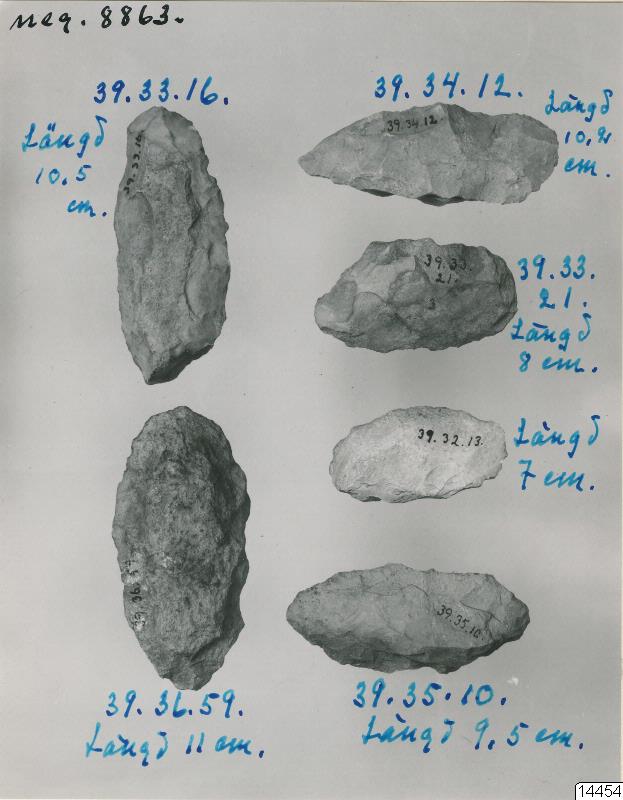 neg. 8863.
39.33.16.
Längd
10,5
cm.
39.33.16.
39.34.12.
Längd
10,2
cm.
39.34.12.
39.33.
21.
Längd
8 cm.
39.33.
21.
3
Längd
7 cm.
39.32.13.
39.36.59
39.36.59.
Längd 11 cm.
39.35.10.
39.35.10.
Längd 9,5 cm.
14454